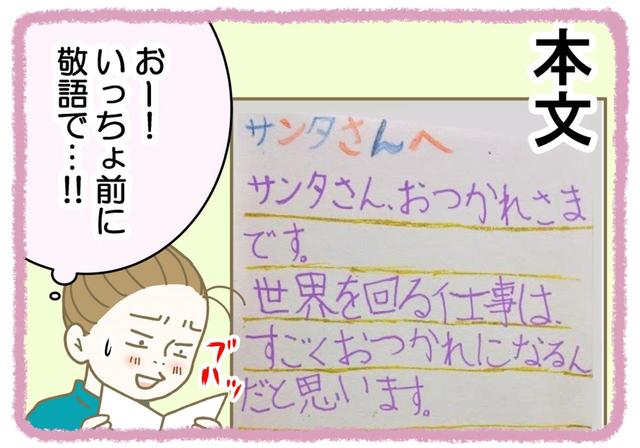 本文
おー!
いっちょ前に
敬語で…!!
サンタさんへ
サンタさん、おつかれさま
です。
世界を回る仕事は、
すごくおつかれになるん
だと思います。
ブハッ